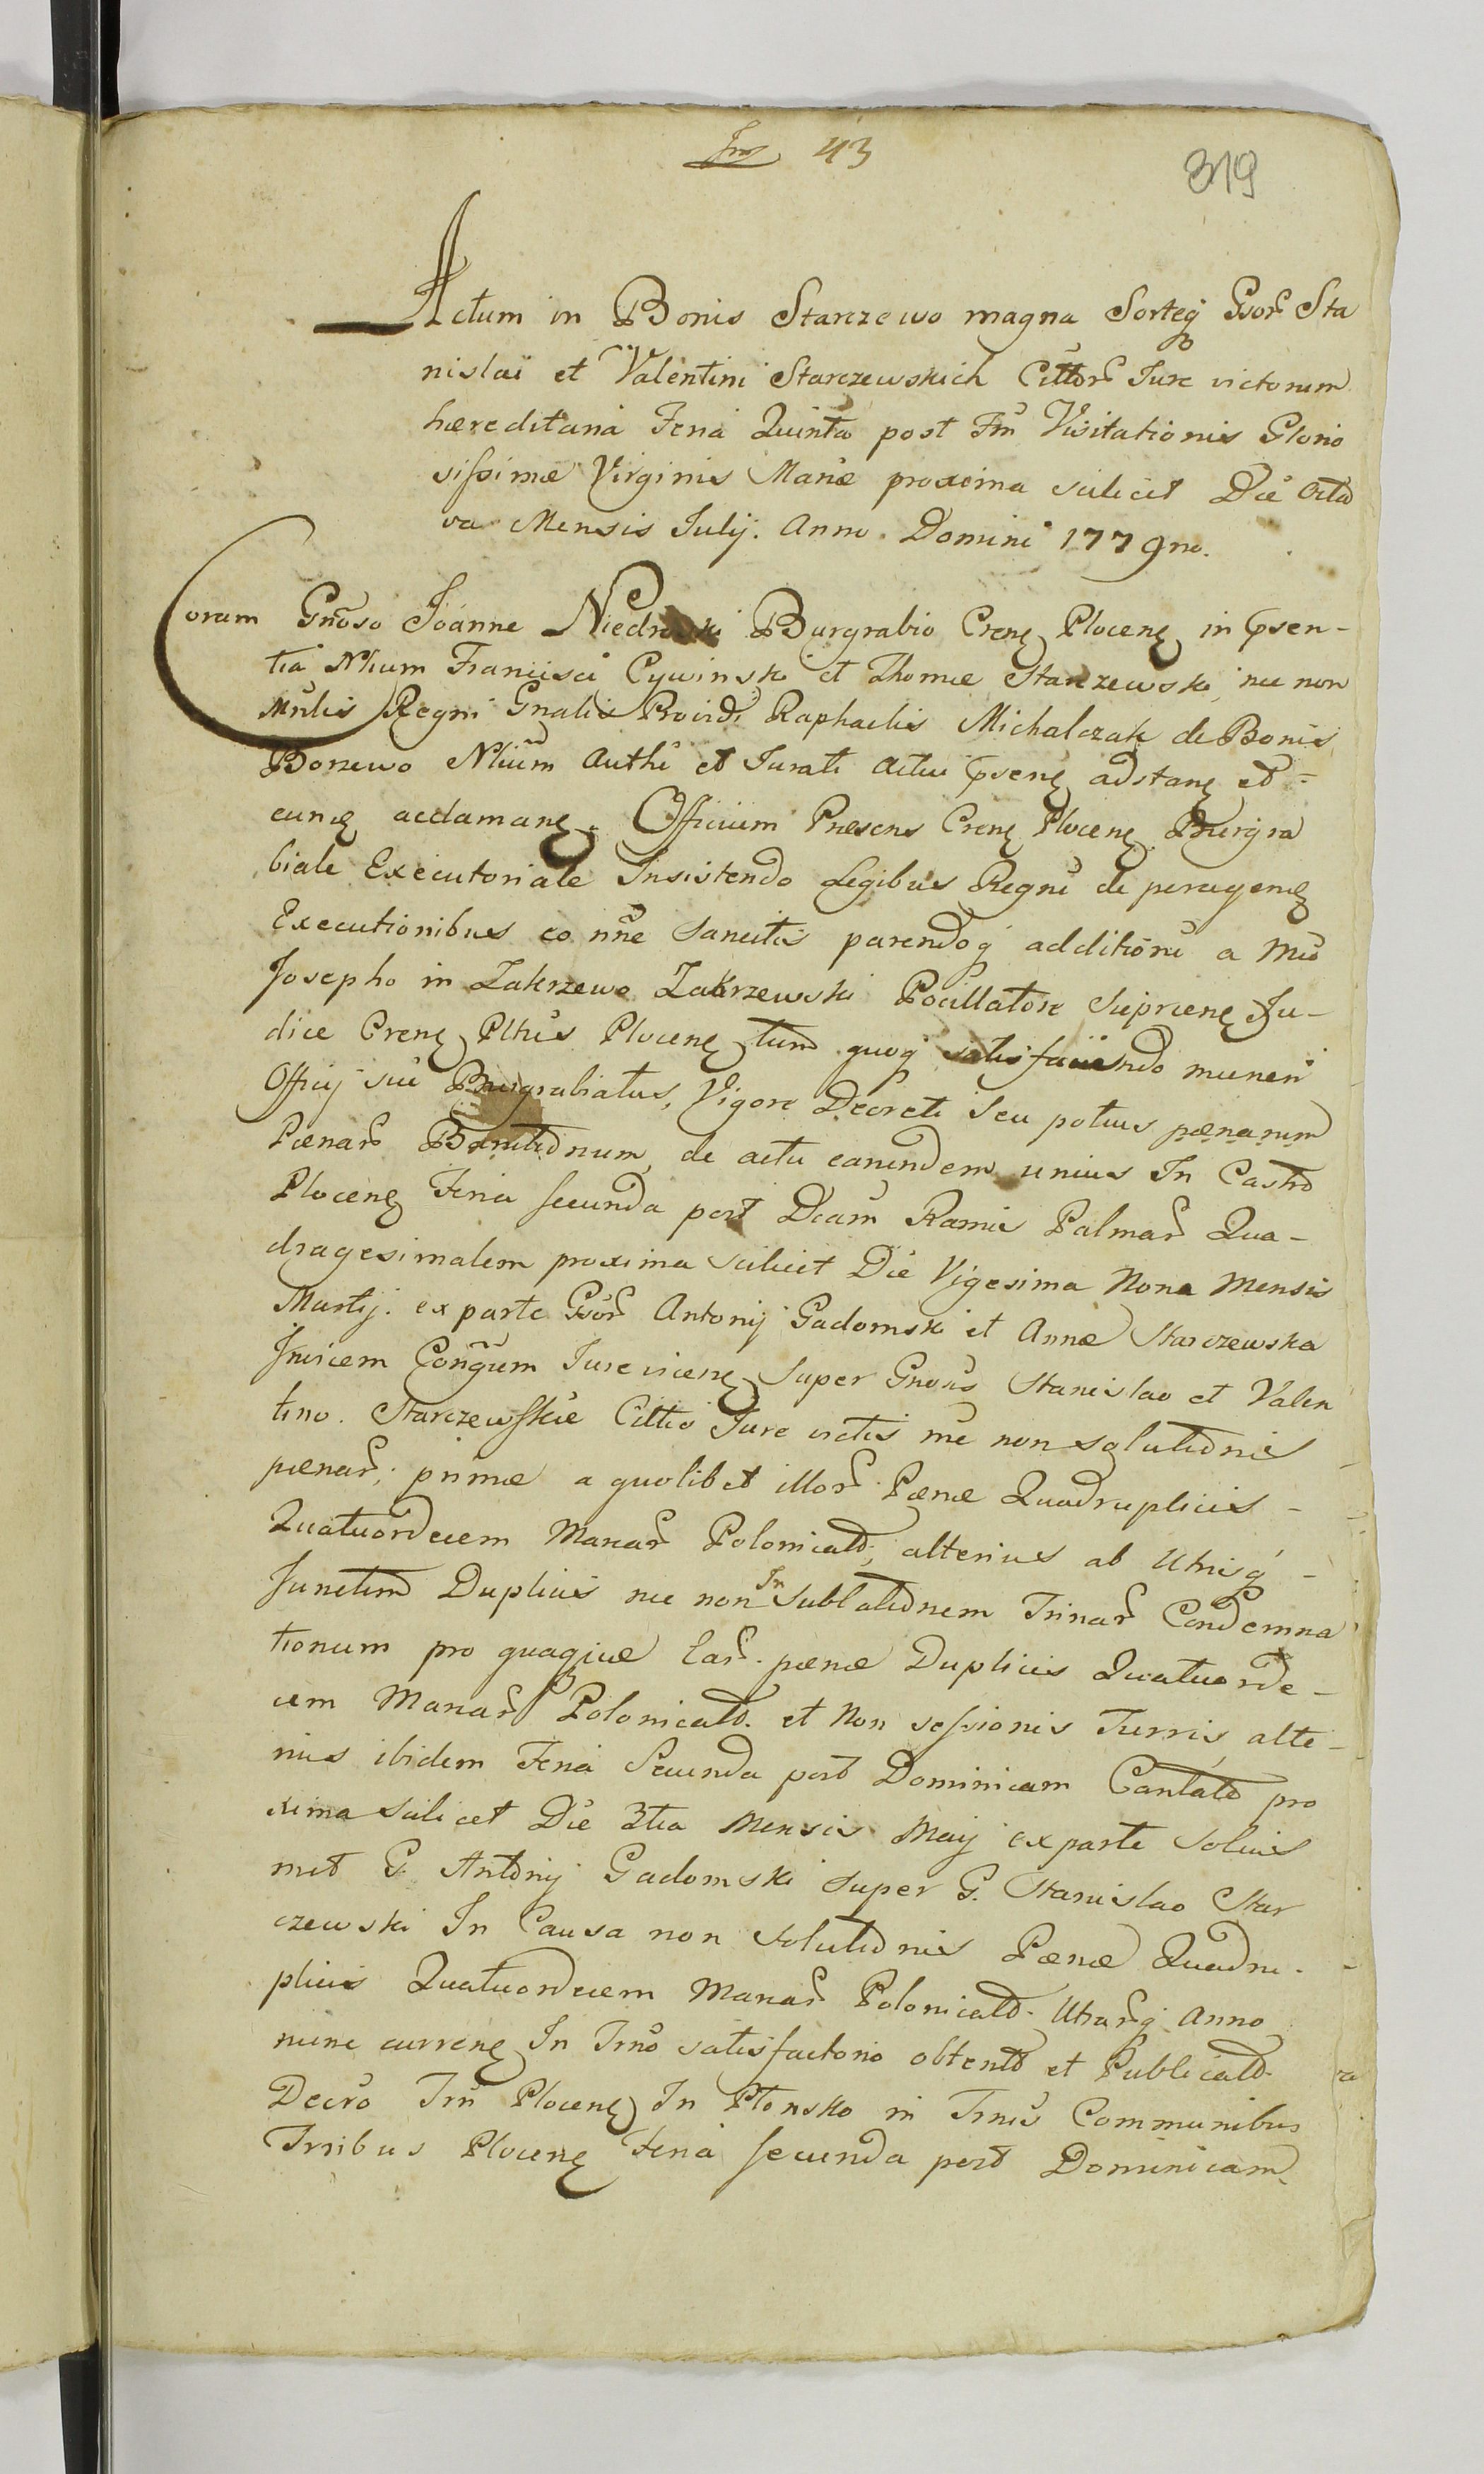 43
319
Actum in Bonis Starczewo magna Sorteq Gsor Sta
nislai et Valentini Starczewskich Cittor Jure victorum
hæreditaria Feria Quinta post Fm Visitationis Glorio
sissimæ Virginis Mariæ proxima scilicet Die Octa
va Mensis Julij. Anno Domini 1779no.
Coram Gnoso Joanne Burgrabio Crenę Plocenę in psen-
tia Nlium Francisci Cywinski et Thomæ Starczewski, nec non
Mnlis Regni Gnalis Providi Raphaelis Michalczak de Bonis
Borzewo Nlium Authi et Jurati actui psenę adstanę et -
eunę acclamanę. Officium Præsens Crenę Plocenę Burgra
biale Executoriale Insistendo Legibus Regni de peragenę
Executionibus eo nne sancitis parendoq additioni a Mco
Josepho in Zakrzewo Zakrzewski Pocillatore Suprænę Ju-
dice Crenę Pltus Plocenę tum quoq satisfaciendo muneri
Officij sui Burgrabiatus, Vigore Decreti seu potius pænarum
Pænar Bannitionum, de actu earundem unius In Castro
Plocenę Feria secunda post Dcam Ramis Palmar Qua-
dragesimalem proxima scilicet Die Vigesima Nona Mensis
Martij. ex parte Gsor Antonij Gadomski et Annæ Starczewska
Invicem Congum Jure vicenę super Gnosis Stanislao et Valen
tino. Starczewskie Cittis Jure victis rne non solutionis
pænar; primæ a quolibet illor Pænæ Quadruplicis -
Quatuordecem Marcar Polonicald; alterius ab Utrisq -
Junctim Duplicis nec non In sublationem Trinar Condemna
tionum pro quaqve Ear. pænæ Duplicis Quatuorde-
cem Marcar Polonicald. et Non sessionis Turris, alte-
rius ibidem Feria Secunda post Dominicam Cantate pro
xima scilicet Die 3tia Mensis Maij ex parte solius
met G. Antonij Gadomski super G. Stanislao Star
czewski In Causa non solutionis Pænæ Quadru-
plicis Quatuordecem Marcar Polonicald. Utrarq Anno
nunc currenę In Trno satisfactorio obtentd et Publicatd.
Decro Trii Plocenę In Płonsko in Trnis Communibus
Trribus Plocenę Feria secunda post Dominicam